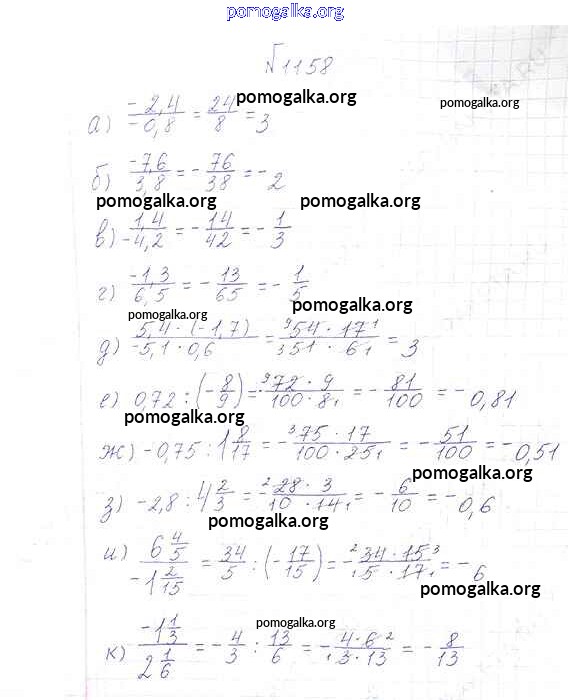 pomogalka.org
№1158
pomogalka.org pomogalka.org
а) -2,4/-0,8 = 24/8 = 3
б) -7,6/3,8 = -76/38 = -2
pomogalka.org pomogalka.org
в) 1,4/-4,2 = -14/42 = -1/3
г) -1,3/6,5 = -13/65 = -1/5
pomogalka.org
pomogalka.org
д) 5,4·(-1,7)/-5,1·0,6 = ⁹54·17¹/₃51·6₁ = 3
е) 0,72 : (-8/9) = -⁹72·9/100·8₁ = -81/100 = -0,81
pomogalka.org
ж) -0,75 : 1 8/17 = -³75·17/100·25₁ = -51/100 = -0,51
pomogalka.org
з) -2,8 : 4 2/3 = -²28·3/10·14₁ = -6/10 = -0,6
pomogalka.org
и) 6 4/5/-1 2/15 = 34/5 : (-17/15) = -²34·15³/₁5·17₁ = -6
pomogalka.org
pomogalka.org
к) -1 1/3/2 1/6 = -4/3 : 13/6 = -4·6²/₁3·13 = -8/13